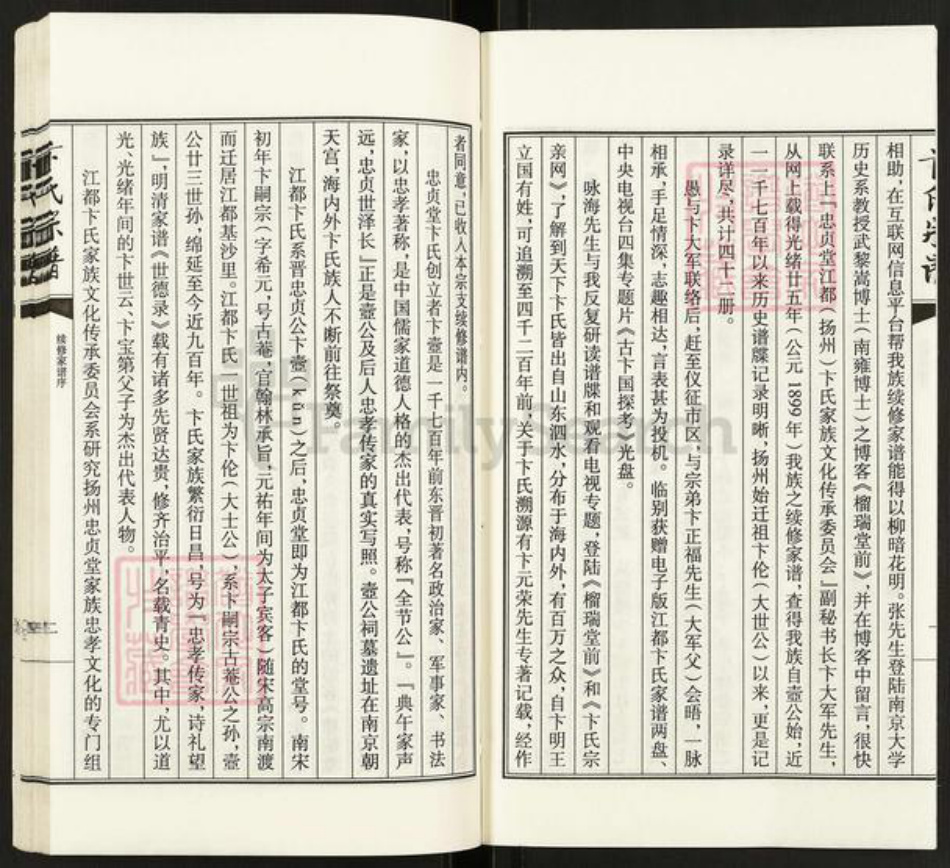 相助，在互联网信息平台帮我族续修家谱能得以柳暗花明。张先生登陆南京大学
历史系教授武黎嵩博士（南雍博士）之博客《榴瑞堂前》，并在博客中留言，很快
联系上『忠贞堂江都（扬州）卞氏家族文化传承委员会』副秘书长卞大军先生，
从网上载得光绪廿五年（公元 1899 年）我族之续修家谱，查得我族自壸公始，近
一千七百年以来历史谱牒记录明晰，扬州始迁祖卞伦（大世公）以来，更是记
录详尽，共计四十三册。
愚与卞大军联络后，赶至仪征市区，与宗弟卞正福先生（大军父）会晤，一脉
相承，手足情深，志趣相达，言表甚为投机。临别获赠电子版江都卞氏家谱两盘、
中央电视台四集专题片《古卞国探考》光盘。
咏海先生与我反复研读谱牒和观看电视专题，登陆《榴瑞堂前》和《卞氏宗
亲网》，了解到天下卞氏皆出自山东泗水，分布于海内外，有百万之众，自卞明王
立国有姓，可追溯至四千二百年前，关于卞氏溯源有卞元荣先生专著记载，经作
者同意，已收入本宗支续修谱内。
忠贞堂卞氏创立者卞壸是一千七百年前东晋初著名政治家、军事家、书法
家，以忠孝著称，是中国儒家道德人格的杰出代表，号称『全节公』。『典午家声
远，忠贞世泽长』正是壸公及后人忠孝传家的真实写照。壸公祠墓遗址在南京朝
天宫，海内外卞氏族人不断前往祭奠。
江都卞氏系晋忠贞公卞壸（kǔn）之后，忠贞堂即为江都卞氏的堂号。南宋
初年卞嗣宗（字希元，号古菴，官翰林承旨，元祐年间为太子宾客）随宋高宗南渡
而迁居江都基沙里。江都卞氏一世祖为卞伦（大士公），系卞嗣宗古菴公之孙，壸
公廿三世孙，绵延至今近九百年。卞氏家族繁衍日昌，号为『忠孝传家，诗礼望
族』，明清家谱《世德录》载有诸多先贤达贵，修齐治平，名载青史。其中，尤以道
光、光绪年间的卞世云、卞宝第父子为杰出代表人物。
江都卞氏家族文化传承委员会系研究扬州忠贞堂家族忠孝文化的专门组
续修家谱序
FamilySearch